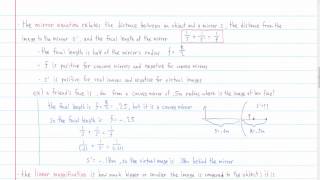 · the mirror equation relates the distance between an object and a mirror s, the distance from the
image to the mirror s', and the focal length of the mirror 1/s + 1/s' = 1/f
- the focal length is half of the mirror's radius f = R/2
- f is positive for concave mirrors and negative for convex mirrors
- s' is positive for real images and negative for virtual images
ex) a friend's face is .6m from a convex mirror of .5m radius where is the image of her face?
the focal length is f = R/2 = .25, but it is a convex mirror
so the focal length is -.25m
1/s + 1/s' = 1/f
s' = -.18m, so the virtual image is .18m behind the mirror
· the linear magnification is how much bigger or smaller the image is compared to the object; it is